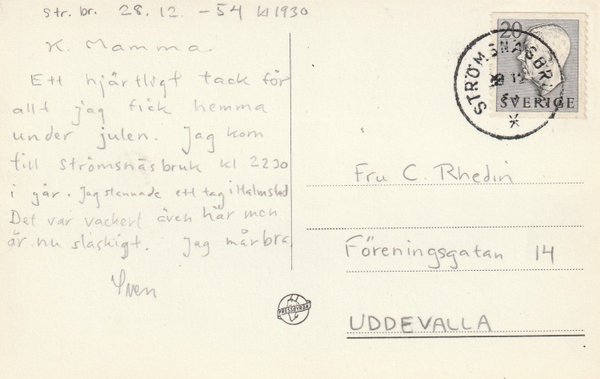 str. br. 28.12. -54 kl 1930
K. Mamma.
Ett hjärtligt tack för
allt jag fick hemma
under julen. Jag kom
till Strömsnäsbruk kl 2230
i går. Jag stannade ett tag i Halmstad
Det var vackert även här men
är nu slaskigt. Jag mår bra
Sven
20
SVERIGE
STRÖMSNÄSBRUK
Fru C. Rhedin
Föreningsgatan 14
UDDEVALLA
PRESSBYRÅN